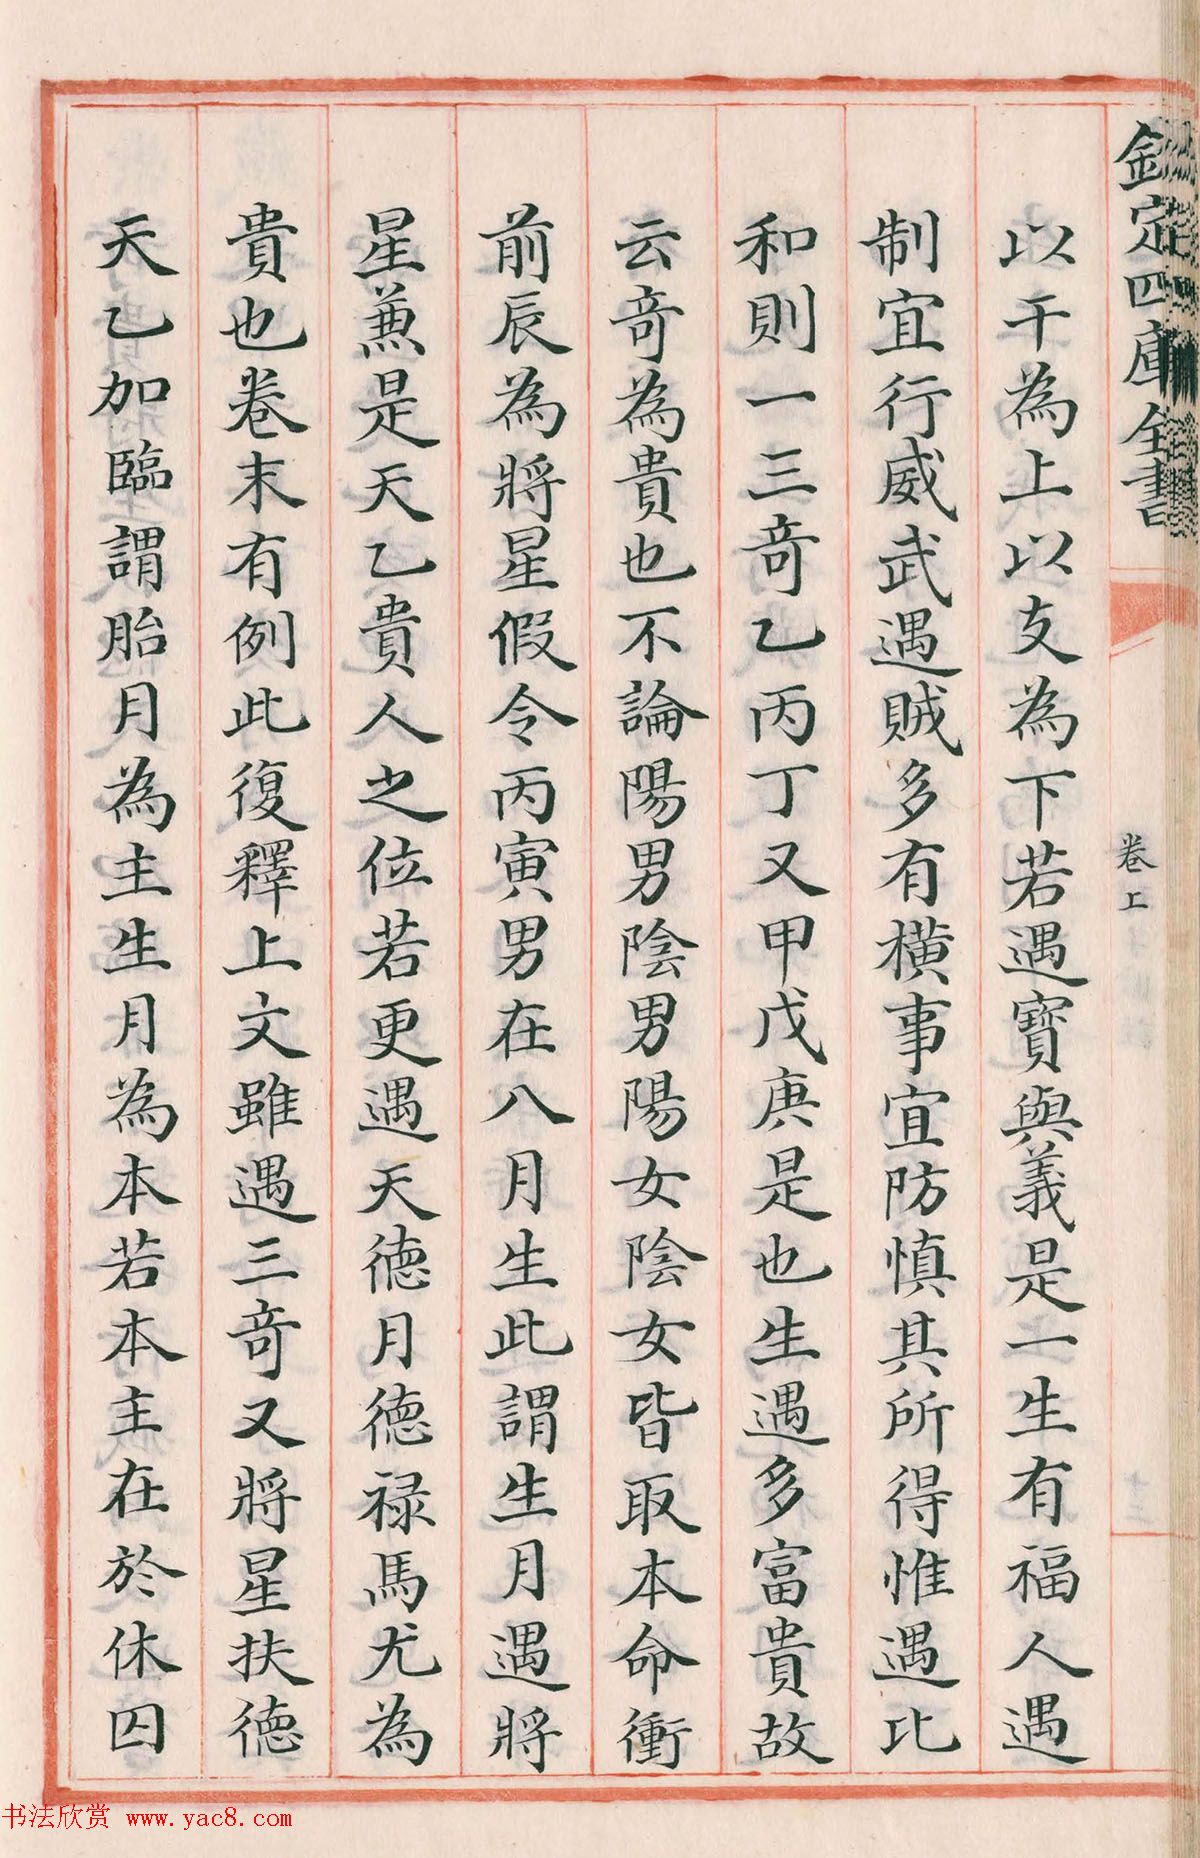 欽定四庫全書
卷上
以干為上以支為下若遇寶與義是一生有福人遇
制宜行威武遇賊多有橫事宜防慎其所得惟遇比
和則一三竒乙丙丁又甲戊庚是也生遇多富貴故
云竒為貴也不論陽男陰男陽女陰女皆取本命衝
前辰為將星假令丙寅男在八月生此謂生月遇將
星蕙是天乙貴人之位若更遇天德月德禄馬尤為
貴也卷末有例此復釋上文雖遇三竒又將星扶德
天乙加臨謂胎月為主生月為本若本主在於休囚
书法欣赏 www.yac8.com